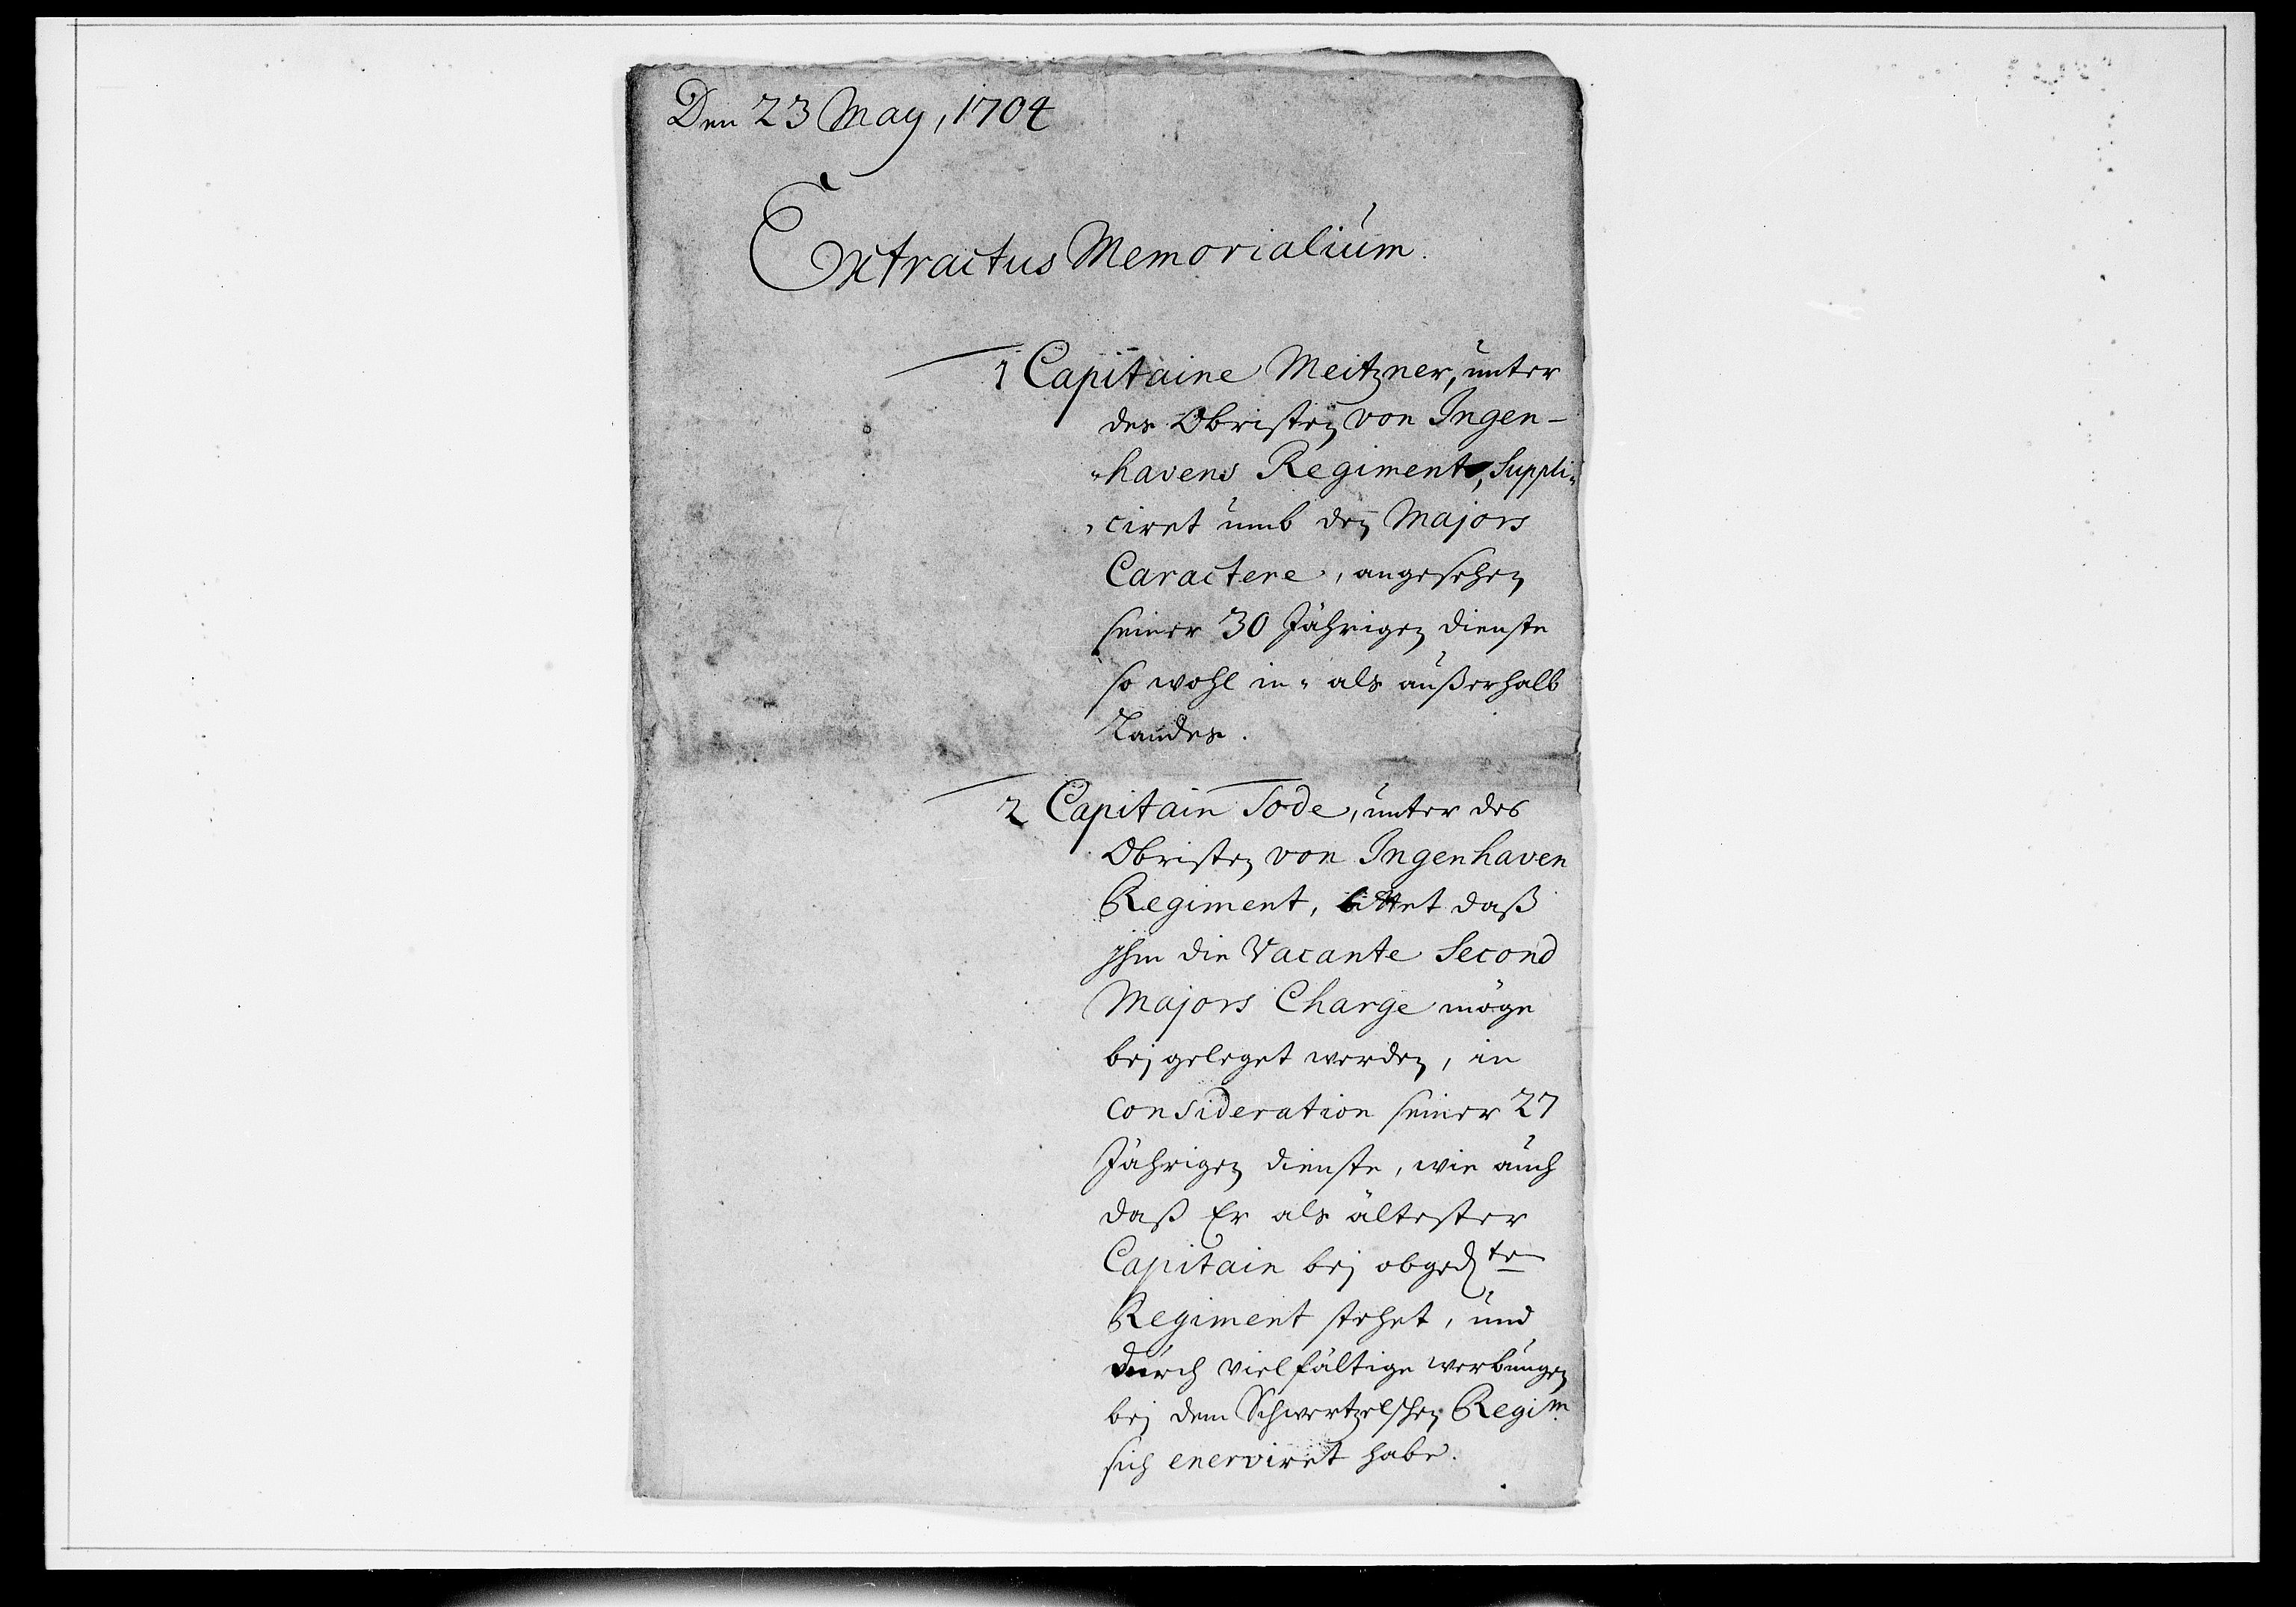 Den 23 May, 1704
Extractus Memorialium.
1 Capitaine Meitzner, unter
des Obristen von Ingen-
"havens Regiment, Suppli"
"ciret umb den Majors
Caractere, angesehen
seiner 30 Jährigen dienste
so wohl in- als außerhalb
Landes.
2 Capitain Tode, unter des
Obristen von Ingenhaven
Regiment, bittet daß
Ihm die Vacante Second
Majors Charge möge
bej geleget werden, in
consideration seiner 27
Jährigen dienste, wie auch
daß Er als ältester
Capitain bej obgedten
Regiment stehet, und
durch vielfältige werbungen
bej dem Schwertzelschen Regim.
sich enerviret habe.